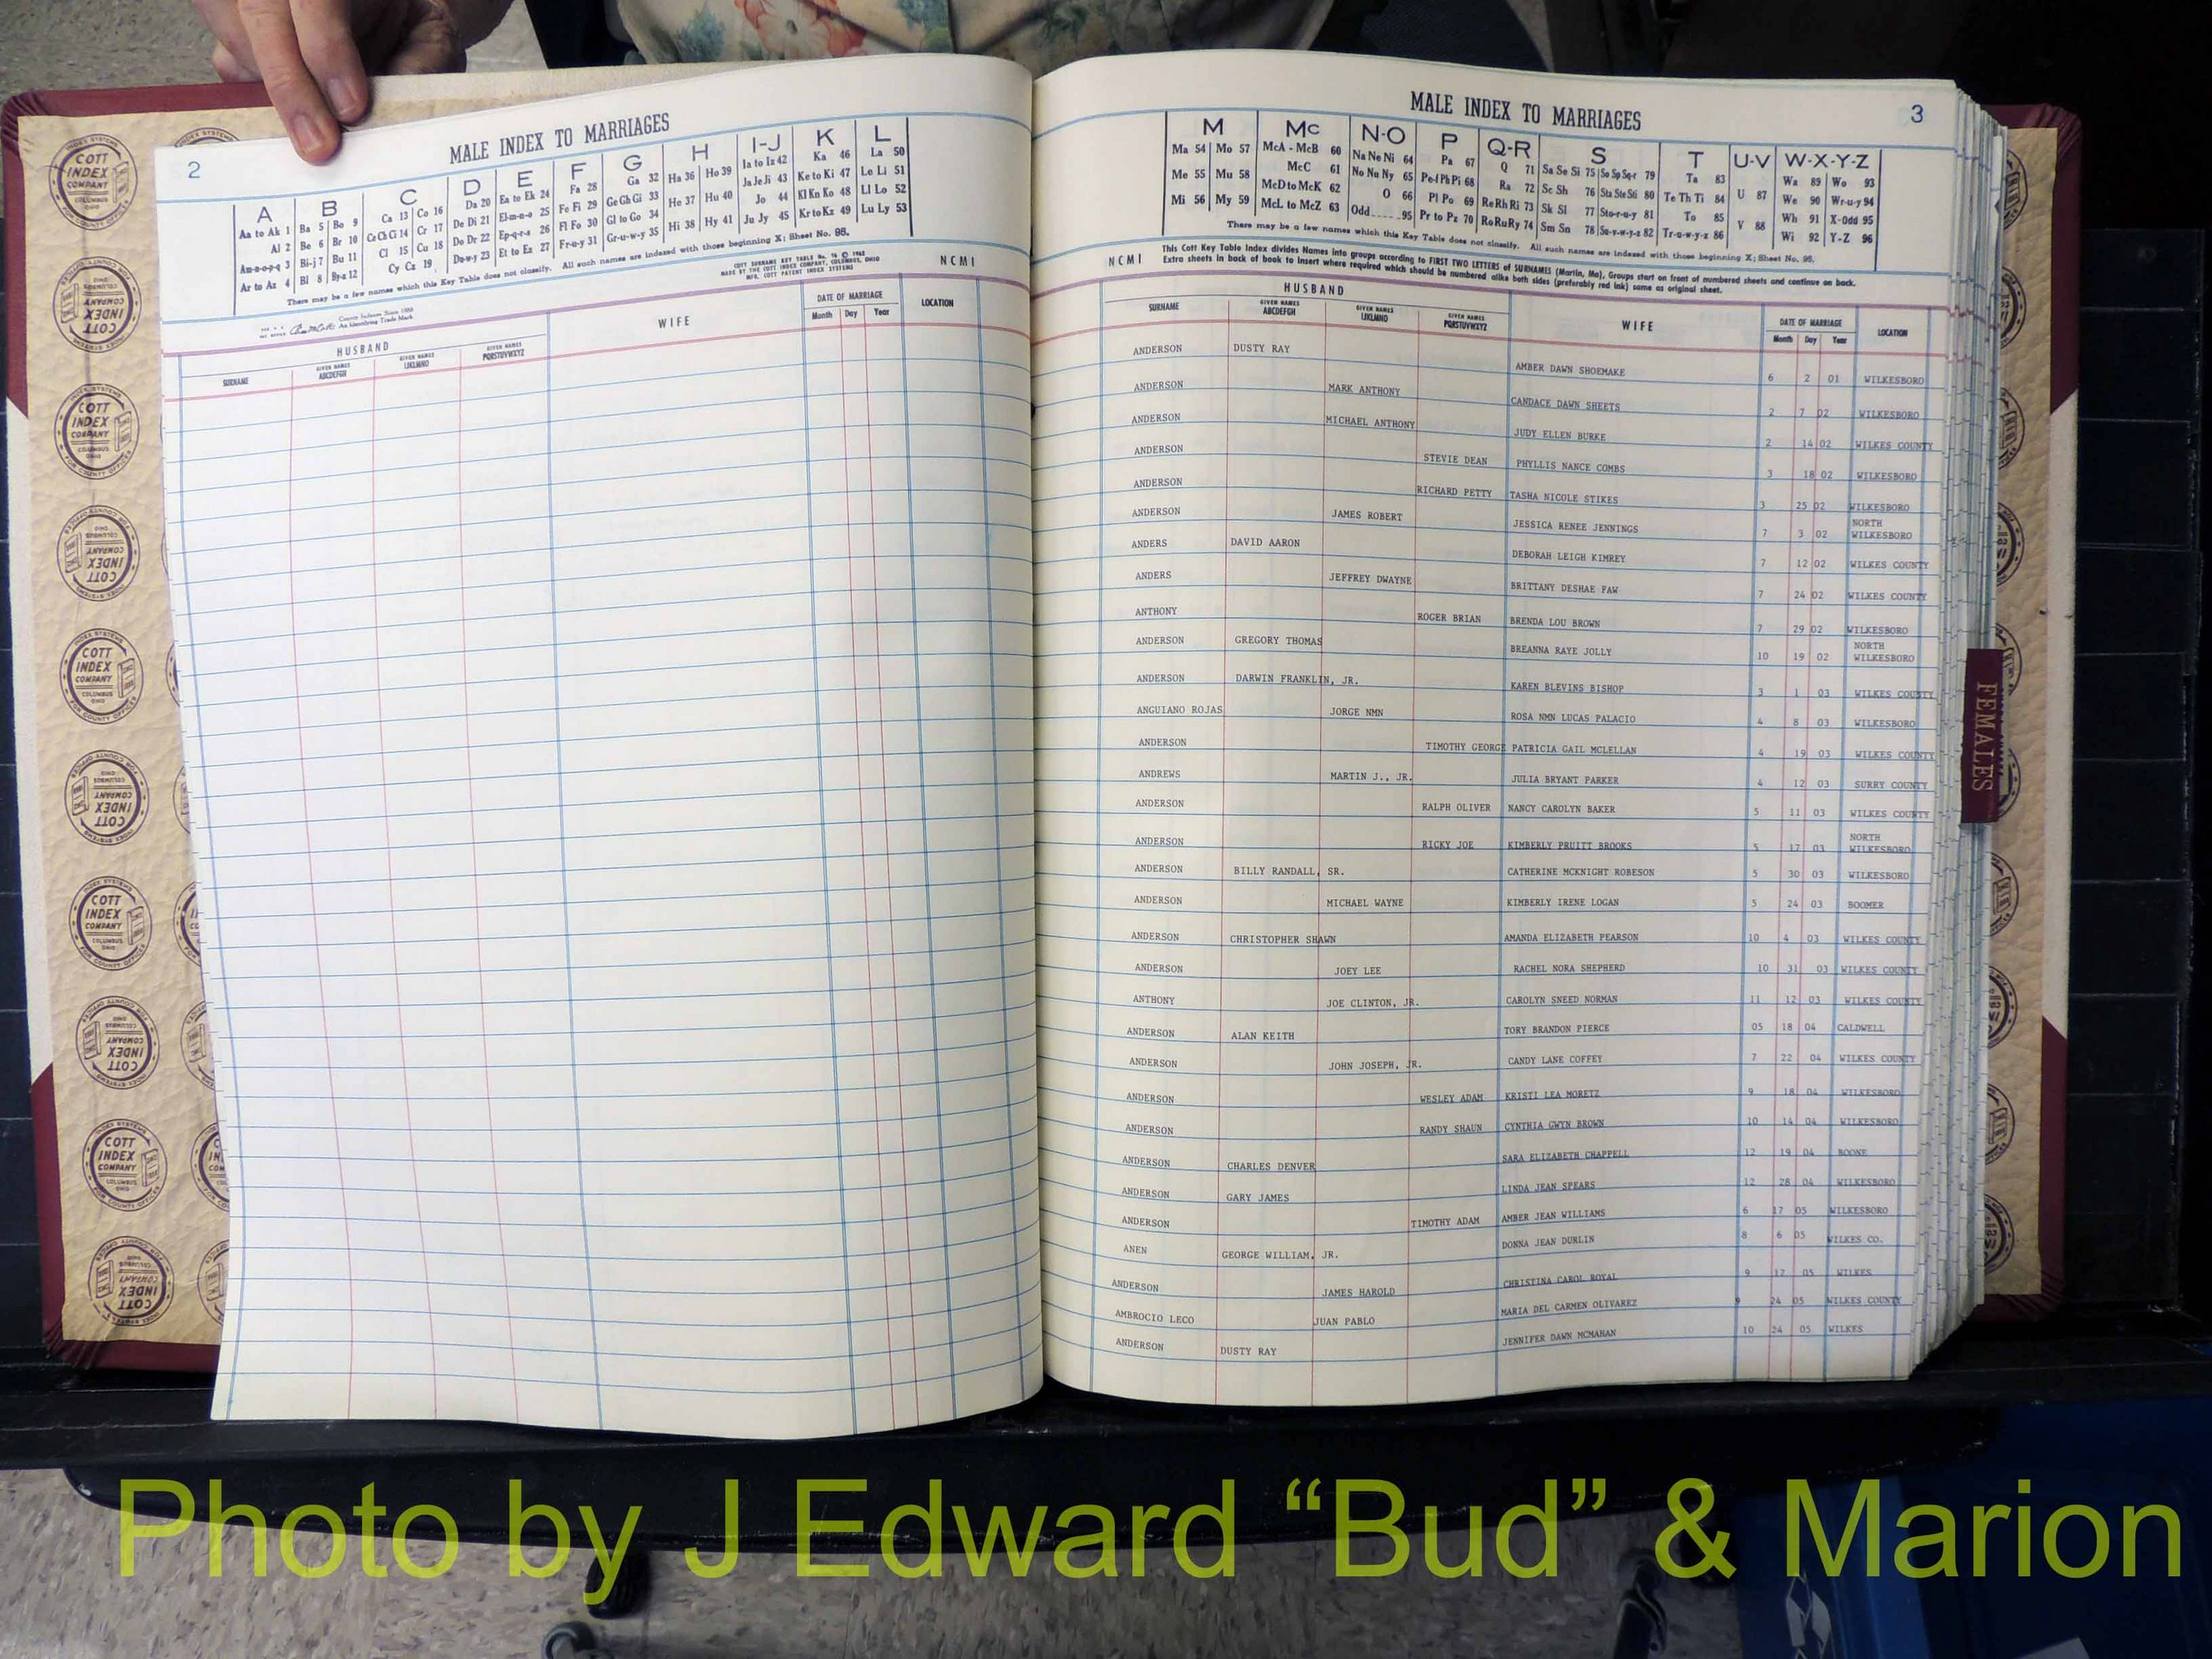 2
MALE INDEX TO MARRIAGES
A B C D E F G H I-J K L
Aa to Ak 1 Ba 5 Bo 9 Ca 13 Co 16 Da 20 Ea to Ek 24 Fa 28 Ga 32 Ha 36 Ho 39 Ia to Iz 42 Ka 46 La 50
Al 2 Be 6 Br 10 Ce Ch Ci 14 Cr 17 De Di 21 El-m-n-o 25 Fe Fi 29 Ge Gh Gi 33 He 37 Hu 40 Ja Je Ji 43 Ke to Ki 47 Le Li 51
Am-n-o-p-q 3 Bi-j 7 Bu 11 Cl 15 Cu 18 Do Dr 22 Ep-q-r-s 26 Fl Fo 30 Gl to Go 34 Hi 38 Hy 41 Jo 44 Kl Kn Ko 48 Ll Lo 52
Ar to Az 4 Bl 8 By-z 12 Cy Cz 19 Du-w-y 23 Et to Ez 27 Fr-u-y 31 Gr-u-w-y 35 Ju Jy 45 Kr to Kz 49 Lu Ly 53
There may be a few names which this Key Table does not classify. All such names are indexed with those beginning X; Sheet No. 95.
COTT SURNAME KEY TABLE No. 96 © 1962
MADE BY THE COTT INDEX COMPANY, COLUMBUS, OHIO
MFR. COTT PATENT INDEX SYSTEMS
NCMI
County Indexes Since 1888
An Identifying Trade Mark
HUSBAND WIFE DATE OF MARRIAGE LOCATION
SURNAME GIVEN NAMES ABCDEFGH GIVEN NAMES IJKLMNO GIVEN NAMES PQRSTUVWXYZ Month Day Year
MALE INDEX TO MARRIAGES
3
M Mc N-O P Q-R S T U-V W-X-Y-Z
Ma 54 Mo 57 McA - McB 60 Na Ne Ni 64 Pa 67 Q 71 Sa Se Si 75 So Sp Sq-r 79 Ta 83 Wa 89 Wo 93
Me 55 Mu 58 McC 61 No Nu Ny 65 Pe-f Ph Pi 68 Ra 72 Sc Sh 76 Sta Ste Sti 80 Te Th Ti 84 U 87 We 90 Wr-u-y 94
Mi 56 My 59 McD to McK 62 O 66 Pl Po 69 Re Rh Ri 73 Sk Sl 77 Sto-r-u-y 81 To 85 Wh 91 X-Odd 95
McL to McZ 63 Odd 95 Pr to Pz 70 Ro Ru Ry 74 Sm Sn 78 Su-v-w-y-z 82 Tr-u-w-y-z 86 V 88 Wi 92 Y-Z 96
There may be a few names which this Key Table does not classify. All such names are indexed with those beginning X; Sheet No. 95.
This Cott Key Table Index divides Names into groups according to FIRST TWO LETTERS of SURNAMES (Martin, Ma). Groups start on front of numbered sheets and continue on back.
NCMI Extra sheets in back of book to insert where required which should be numbered alike both sides (preferably red ink) same as original sheet.
HUSBAND WIFE DATE OF MARRIAGE LOCATION
SURNAME GIVEN NAMES ABCDEFGH GIVEN NAMES IJKLMNO GIVEN NAMES PQRSTUVWXYZ Month Day Year
ANDERSON DUSTY RAY AMBER DAWN SHOEMAKE 6 2 01 WILKESBORO
ANDERSON MARK ANTHONY CANDACE DAWN SHEETS 2 7 02 WILKESBORO
ANDERSON MICHAEL ANTHONY JUDY ELLEN BURKE 2 14 02 WILKES COUNTY
ANDERSON STEVIE DEAN PHYLLIS NANCE COMBS 3 18 02 WILKESBORO
ANDERSON RICHARD PETTY TASHA NICOLE STIKES 3 25 02 WILKESBORO
ANDERSON JAMES ROBERT JESSICA RENEE JENNINGS 7 3 02 NORTH WILKESBORO
ANDERS DAVID AARON DEBORAH LEIGH KIMREY 7 12 02 WILKES COUNTY
ANDERS JEFFREY DWAYNE BRITTANY DESHAE FAW 7 24 02 WILKES COUNTY
ANTHONY ROGER BRIAN BRENDA LOU BROWN 7 29 02 WILKESBORO
ANDERSON GREGORY THOMAS BREANNA RAYE JOLLY 10 19 02 NORTH WILKESBORO
ANDERSON DARWIN FRANKLIN, JR. KAREN BLEVINS BISHOP 3 1 03 WILKES COUNTY
ANGUIANO ROJAS JORGE NMN ROSA NMN LUCAS PALACIO 4 8 03 WILKESBORO
ANDERSON TIMOTHY GEORGE PATRICIA GAIL MCLELLAN 4 19 03 WILKES COUNTY
ANDREWS MARTIN J., JR. JULIA BRYANT PARKER 4 12 03 SURRY COUNTY
ANDERSON RALPH OLIVER NANCY CAROLYN BAKER 5 11 03 WILKES COUNTY
ANDERSON RICKY JOE KIMBERLY PRUITT BROOKS 5 17 03 NORTH WILKESBORO
ANDERSON BILLY RANDALL, SR. CATHERINE MCKNIGHT ROBESON 5 30 03 WILKESBORO
ANDERSON MICHAEL WAYNE KIMBERLY IRENE LOGAN 5 24 03 BOOMER
ANDERSON CHRISTOPHER SHAWN AMANDA ELIZABETH PEARSON 10 4 03 WILKES COUNTY
ANDERSON JOEY LEE RACHEL NORA SHEPHERD 10 31 03 WILKES COUNTY
ANTHONY JOE CLINTON, JR. CAROLYN SNEED NORMAN 11 12 03 WILKES COUNTY
ANDERSON ALAN KEITH TORY BRANDON PIERCE 05 18 04 CALDWELL
ANDERSON JOHN JOSEPH, JR. CANDY LANE COFFEY 7 22 04 WILKES COUNTY
ANDERSON WESLEY ADAM KRISTI LEA MORETZ 9 18 04 WILKESBORO
ANDERSON RANDY SHAUN CYNTHIA GWYN BROWN 10 14 04 WILKESBORO
ANDERSON CHARLES DENVER SARA ELIZABETH CHAPPELL 12 19 04 BOONE
ANDERSON GARY JAMES LINDA JEAN SPEARS 12 28 04 WILKESBORO
ANDERSON TIMOTHY ADAM AMBER JEAN WILLIAMS 6 17 05 WILKESBORO
ANEN GEORGE WILLIAM, JR. DONNA JEAN DURLIN 8 6 05 WILKES CO.
ANDERSON JAMES HAROLD CHRISTINA CAROL ROYAL 9 17 05 WILKES
AMBROCIO LECO JUAN PABLO MARIA DEL CARMEN OLIVAREZ 9 24 05 WILKES COUNTY
ANDERSON DUSTY RAY JENNIFER DAWN MCMAHAN 10 24 05 WILKES
FEMALES
COTT INDEX COMPANY
COLUMBUS OHIO
INDEX SYSTEMS
FOR COUNTY OFFICES
Photo by J Edward “Bud” & Marion